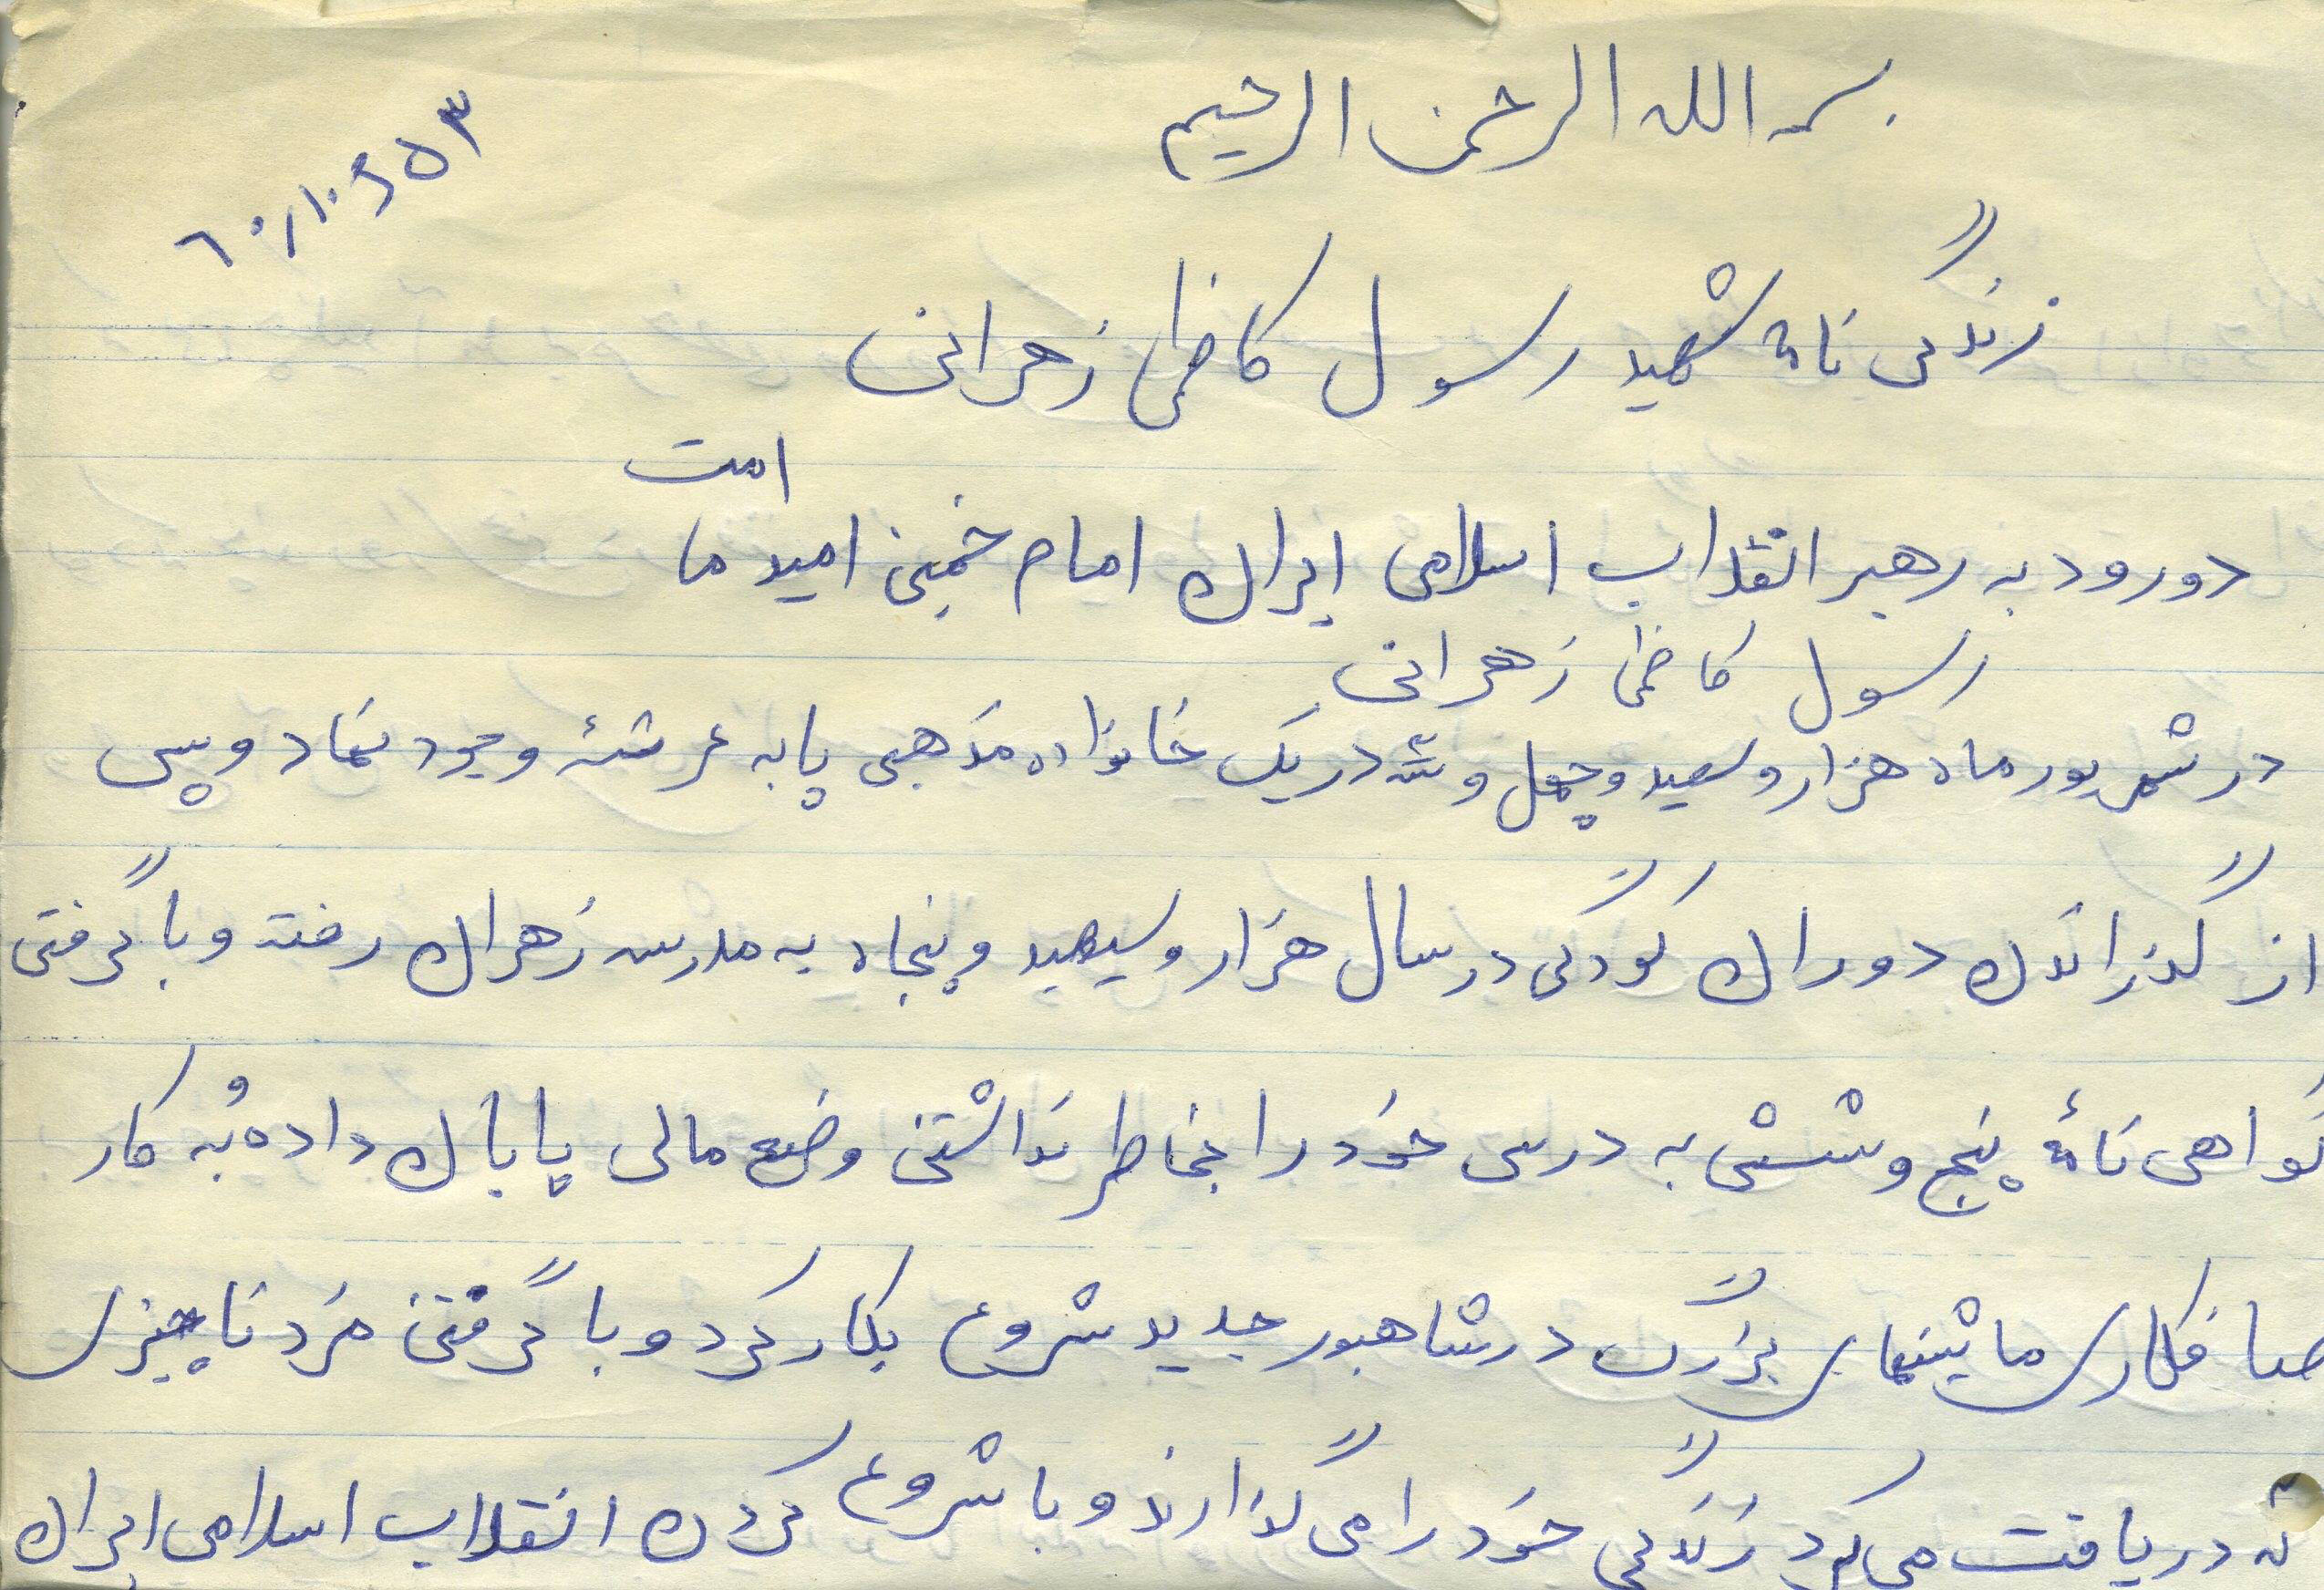 بسمه الله الرحمن الرحیم
۶۰۱۱۰۶۵۳
زندگی نامۀ شهید رسول کاظمی زهرانی
امت
دورود به رهبر انقلاب اسلامی ایران امام خمینی امید ما
رسول کاظمی زهرانی
در شهریور ماه هزار و سیصد و چهل و سه در یک خانواده مذهبی پا به عرشۀ وجود نهاد و پس
از گذراندن دوران کودکی در سال هزار و سیصد و پنجاه به مدرسه زهران رفته و با گرفتن
گواهی نامۀ پنج و ششش به درس خود را بخاطر نداشتن وضع مالی پایان داده و به کار
صافکاری ماشینهای بزرگ در شاهپور جدید شروع بکار کرد و با گرفتن مزد ناچیزی
که دریافت می کرد زندگی خود را می گذارند و با شروع کردن انقلاب اسلامی ایران